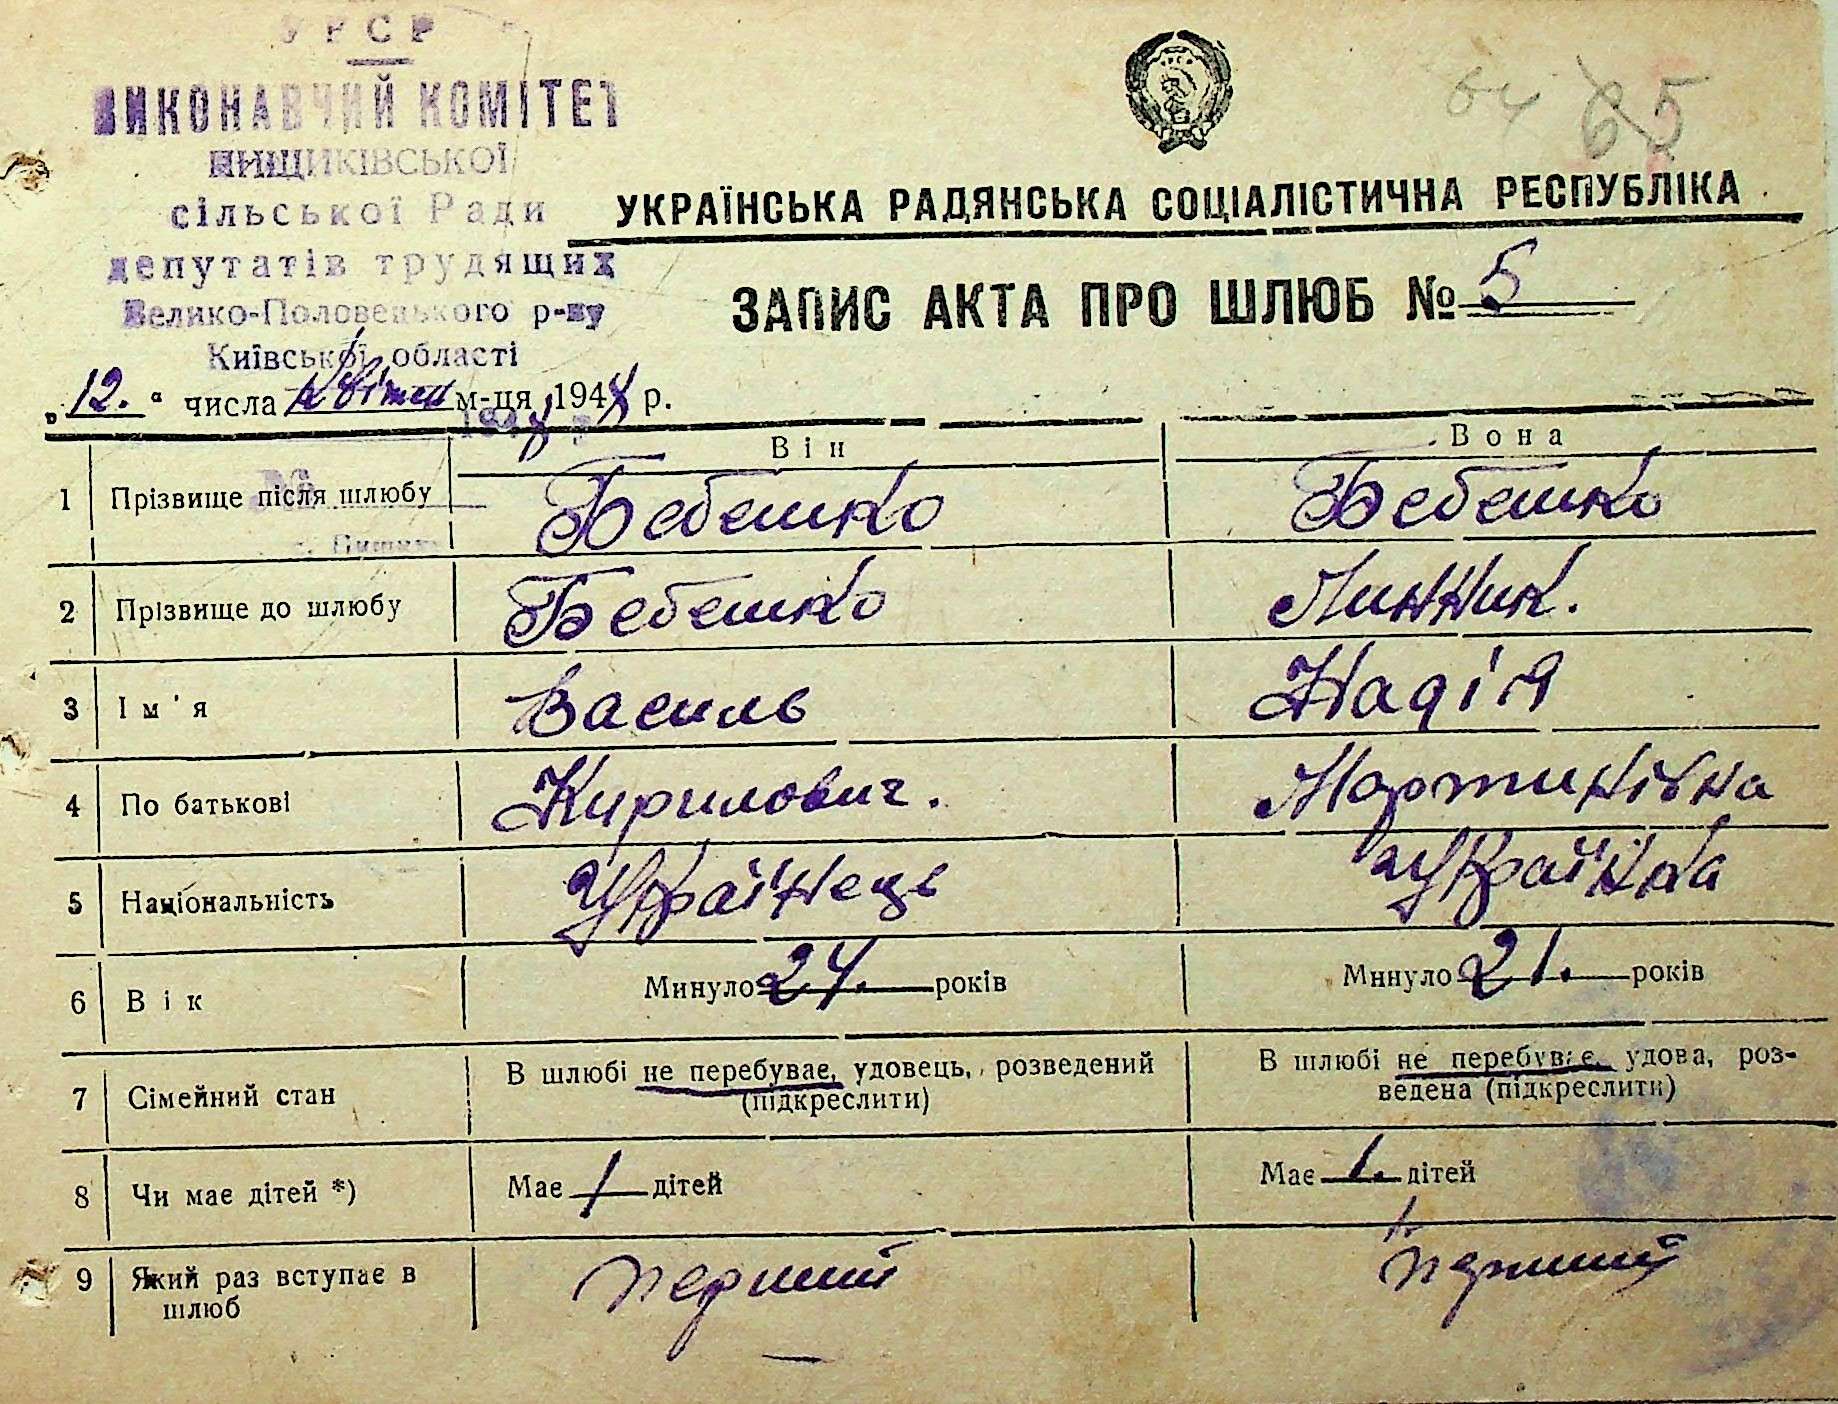 УРСР
ВИКОНАВЧИЙ КОМІТЕТ
ПИЩИКІВСЬКОЇ
сільської Ради
депутатів трудящих
Велико-Половецького р-ну
Київської області
64 65
УКРАЇНСЬКА РАДЯНСЬКА СОЦІАЛІСТИЧНА РЕСПУБЛІКА
ЗАПИС АКТА ПРО ШЛЮБ № 5
„12.“ числа квітня м-ця 1948 р.
Він Вона
1 Прізвище після шлюбу Бебешко Бебешко
2 Прізвище до шлюбу Бебешко Линник.
3 Ім'я Василь Надія
4 По батькові Кирилович. Мартинівна
5 Національність Українець Українка
6 Вік Минуло 24. років Минуло 21. років
7 Сімейний стан В шлюбі не перебуває, удовець, розведений (підкреслити) В шлюбі не перебуває, удова, роз-
ведена (підкреслити)
8 Чи має дітей *) Має 1 дітей Має 1. дітей
9 Який раз вступає в шлюб перший 1. перший